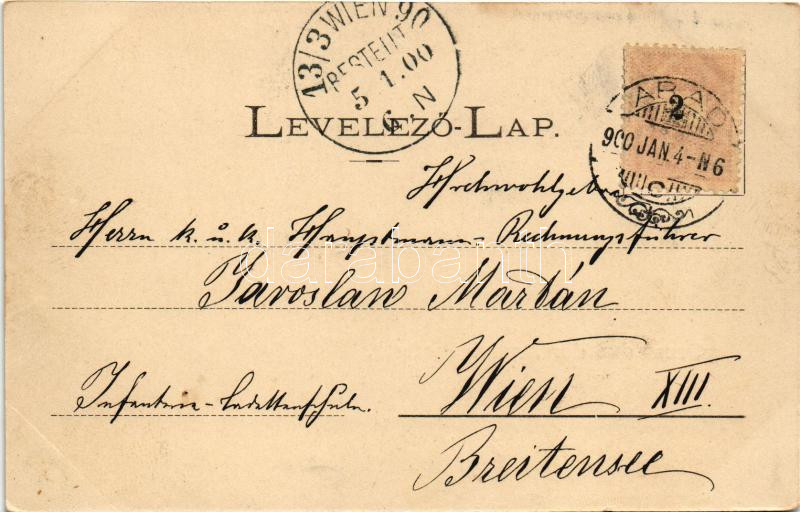 13/3 WIEN 90
BESTELLT
5 1.00
6.N
LEVELEZŐ-LAP.
2
ARAD
900 JAN. 4-N6
C
Hochwohlgeboren
Herrn k. u. k. Hauptmann-Rechnungsführer
darabanth
Jaroslaw Martán
Infanterie-Cadettenschule.
Wien XIII.
Breitensee